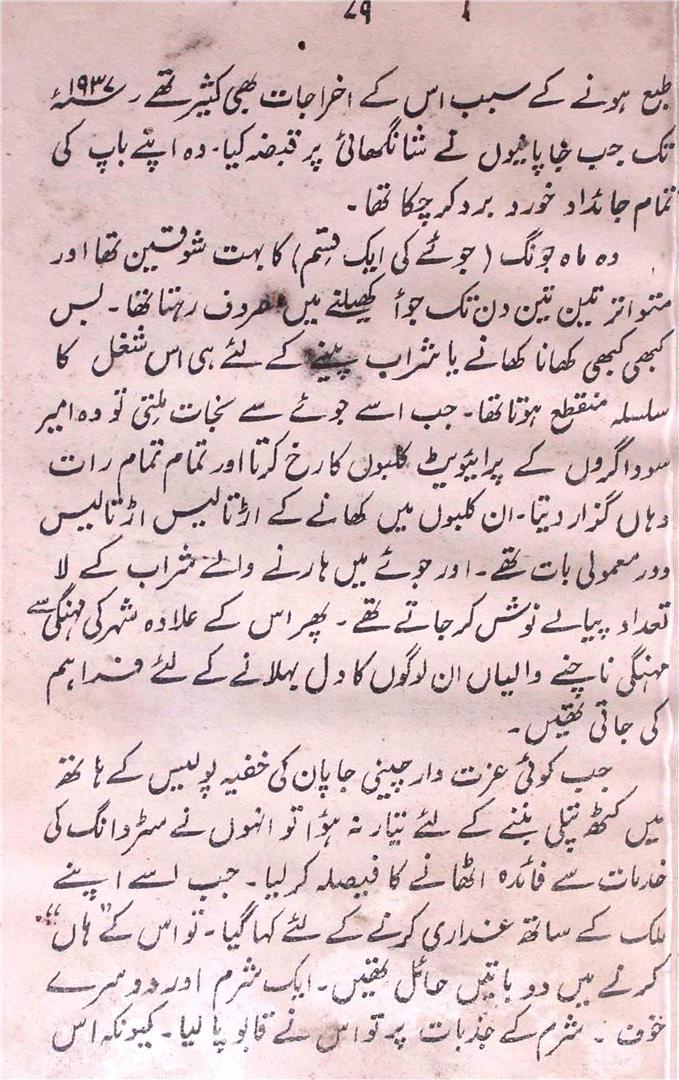 ۷۹
طبع ہونے کے سبب اس کے اخراجات بھی کثیر تھے ۔ ۱۹۳۷ء
تک جب جاپانیوں نے شانگھائی پر قبضہ کیا۔ وہ اپنے باپ کی
تمام جائداد خورد برد کر چکا تھا ۔
وہ ماہ جونگ ( جوئے کی ایک قسم) کا بہت شوقین تھا اور
متواتر تین تین دن تک جوأ کھیلنے میں مصروف رہتا تھا ۔ بس
کبھی کبھی کھانا کھانے یا شراب پینے کے لئے ہی اس شغل کا
سلسلہ منقطع ہوتا تھا۔ جب اسے جوئے سے نجات ملتی تو وہ امیر
سوداگروں کے پرائیویٹ کلبوں کا رخ کرتا اور تمام تمام رات
وہاں گزار دیتا۔ ان کلبوں میں کھانے کے اڑتالیس اڑتالیس
دور معمولی بات تھے۔ اور جوئے میں ہارنے والے شراب کے لا
تعداد پیالے نوش کر جاتے تھے ۔ پھر اس کے علاوہ شہر کی مہنگی سے
مہنگی ناچنے والیاں ان لوگوں کا دل بہلانے کے لئے فراہم
کی جاتی تھیں۔
جب کوئی عزت دار چینی جاپان کی خفیہ پولیس کے ہاتھ
میں کٹھ پتلی بننے کے لئے تیار نہ ہؤا تو انہوں نے سڑدانگ کی
خدمات سے فائدہ اٹھانے کا فیصلہ کر لیا ۔ جب اسے اپنے
ملک کے ساتھ غداری کرنے کے لئے کہا گیا ۔ تو اس کے "ہاں"
کرنے میں دو باتیں حائل تھیں۔ ایک شرم اور دوسرے
خوف ۔ شرم کے جذبات پر تو اس نے قابو پا لیا ۔ کیونکہ اس